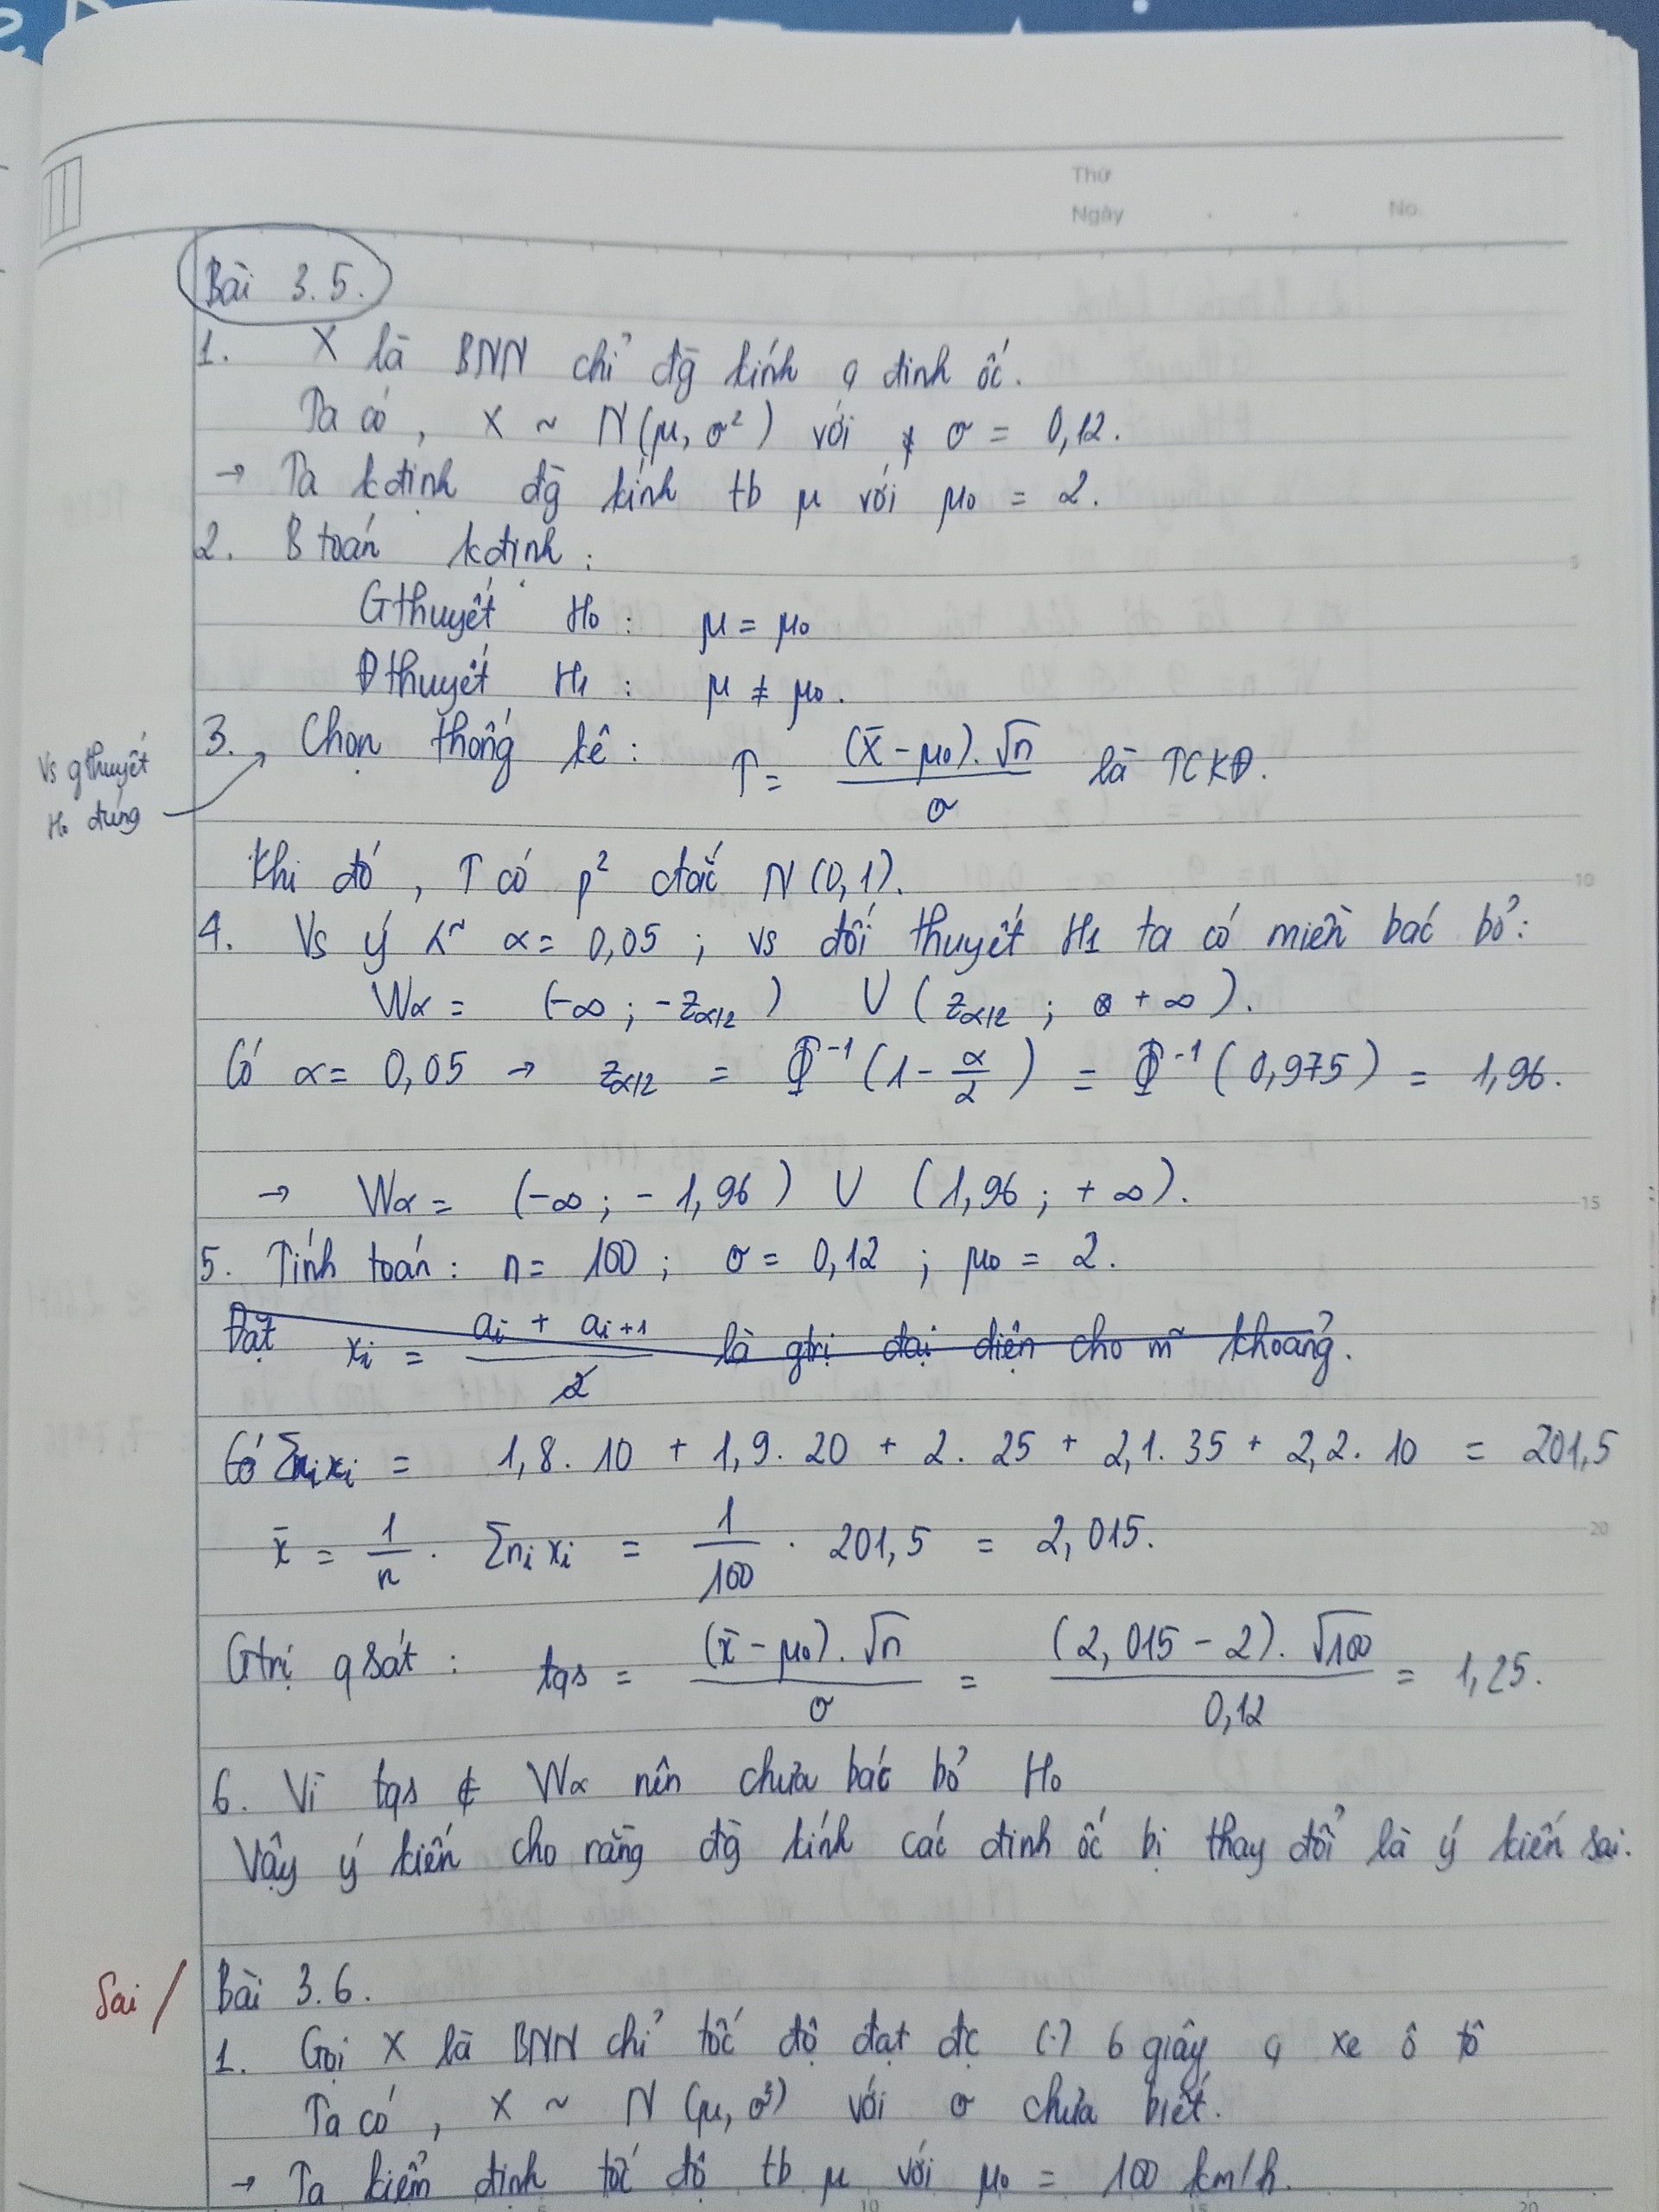 Thứ
Ngày . . No.
Bài 3.5.
1. X là BNN chỉ đg kính q đinh ốc.
Ta có, X ~ N(μ, σ²) với σ = 0,12.
→ Ta kđịnh đg kính tb μ với μ₀ = 2.
2. B toán kđịnh:
Gthuyết H₀ : μ = μ₀
Đthuyết H₁ : μ ≠ μ₀.
3. Chọn thống kê: T = (x̄ - μ₀).√n / σ là TCKĐ.
Vs gthuyết
H₀ đúng
Khi đó, T có p² ctắc N(0,1).
4. Vs ý n~ α = 0,05 ; vs đối thuyết H₁ ta có miền bác bỏ:
Wα = (-∞ ; -z_α/2) ∪ (z_α/2 ; +∞).
Có α = 0,05 → z_α/2 = Φ⁻¹(1 - α/2) = Φ⁻¹(0,975) = 1,96.
→ Wα = (-∞ ; -1,96) ∪ (1,96 ; +∞).
5. Tính toán: n = 100 ; σ = 0,12 ; μ₀ = 2.
Đặt xᵢ = (aᵢ + aᵢ₊₁) / 2 là gtrị đại diện cho m~ khoảng.
Có Σnᵢxᵢ = 1,8.10 + 1,9.20 + 2.25 + 2,1.35 + 2,2.10 = 201,5
x̄ = 1/n . Σnᵢxᵢ = 1/100 . 201,5 = 2,015.
Gtrị q sát : tqs = (x̄ - μ₀).√n / σ = (2,015 - 2).√100 / 0,12 = 1,25.
6. Vì tqs ∉ Wα nên chưa bác bỏ H₀
Vậy ý kiến cho rằng đg kính các đinh ốc bị thay đổi là ý kiến sai.
Sai / Bài 3.6.
1. Gọi X là BNN chỉ tốc độ đạt đc (.) 6 giây q xe ô tô
Ta có, X ~ N(μ, σ²) với σ chưa biết.
→ Ta kiểm định tốc độ tb μ với μ₀ = 100 km/h.